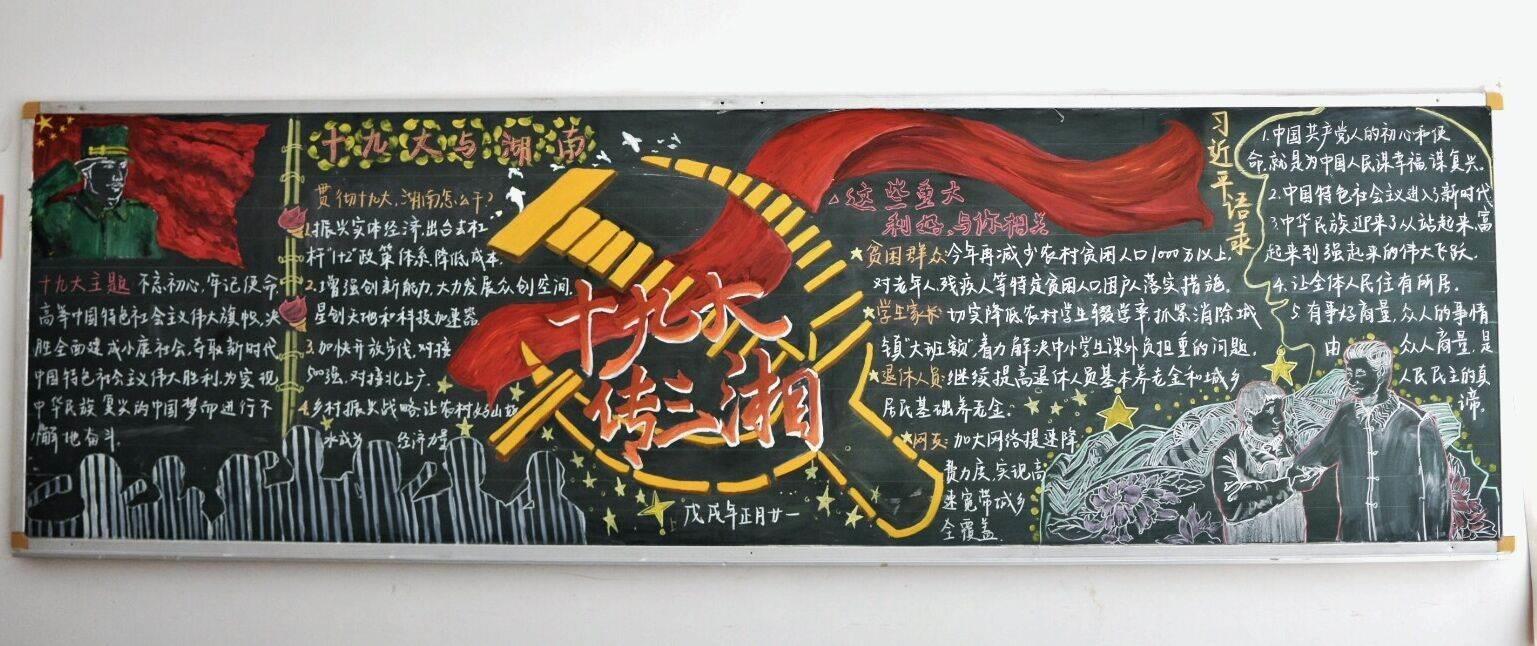 十九大主题 不忘初心,牢记使命
高举中国特色社会主义伟大旗帜,决
胜全面建成小康社会,夺取新时代
中国特色社会主义伟大胜利,为实现
中华民族复兴的中国梦而进行不
懈地奋斗.
十九大与湖南
贯彻十九大,湖南怎么干?
1.振兴实体经济,出台去杠
杆"1+2"政策体系,降低成本.
2.增强创新能力,大力发展众创空间.
星创天地和科技加速器.
3.加快开放步伐,对接
500强,对接北上广.
4.乡村振兴战略:让农村好山好
水成为 经济力量
十九大
传三湘
戊戌年正月廿一
这些重大
利好,与你相关
贫困群众:今年再减少农村贫困人口1000万以上,
对老年人、残疾人等特定贫困人口,因户落实措施.
学生家长:切实降低农村学生辍学率,抓紧消除城
镇"大班额",着力解决中小学生课外负担重的问题.
退休人员:继续提高退休人员基本养老金和城乡
居民基础养老金.
网友:加大网络提速降
费力度,实现高
速宽带城乡
全覆盖.
习近平语录
1.中国共产党人的初心和使
命,就是为中国人民谋幸福,谋复兴.
2.中国特色社会主义进入了新时代
3.中华民族迎来了从站起来,富
起来到强起来的伟大飞跃.
4.让全体人民住有所居.
5.有事好商量,众人的事情
由 众人商量,是
人民民主的真
谛.